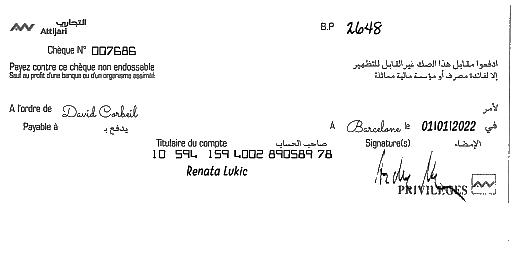 التجاري
Attijari
B.P 2648
Chèque N° 007686
Payez contre ce chèque non endossable
Sauf au profit d'une banque ou d'un organisme assimilé
ادفعوا مقابل هذا الصك غير القابل للتظهير
إلا لفائدة مصرف أو مؤسسة مالية مماثلة
A l'ordre de David Corbeil لأمر
Payable à يدفع بـ A Barcelone le 01/01/2022 في
Titulaire du compte صاحب الحساب Signature(s) الإمضاء
10 594 159 4002 890589 78
Renata Lukic
PRIVILEGES